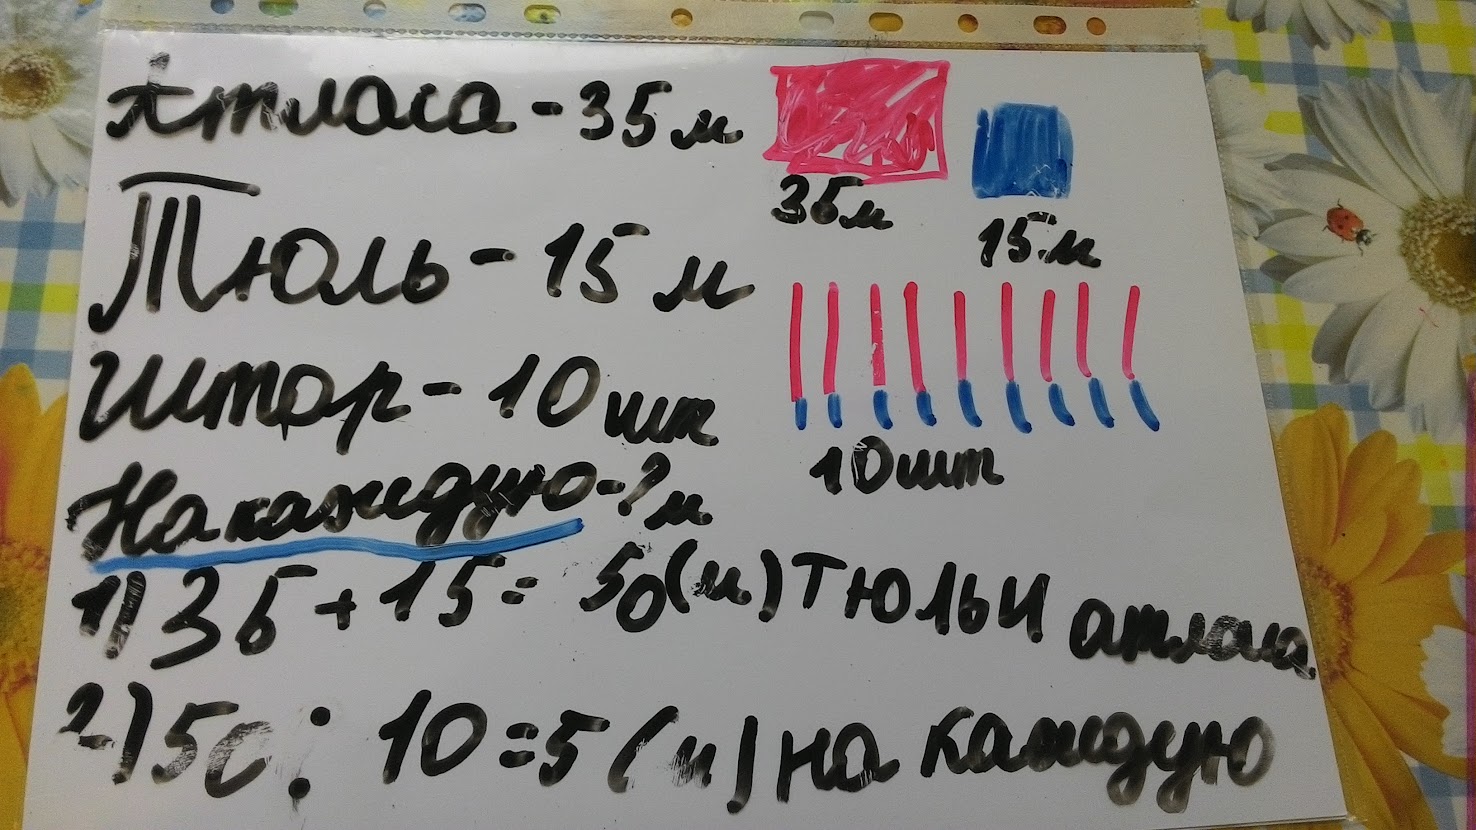 Атласа - 35 м
35 м
15 м
Тюль - 15 м
Штор - 10 шт
10 шт
На каждую - ? м
1) 35 + 15 = 50 (м) тюль и атласа
2) 50 : 10 = 5 (м) на каждую